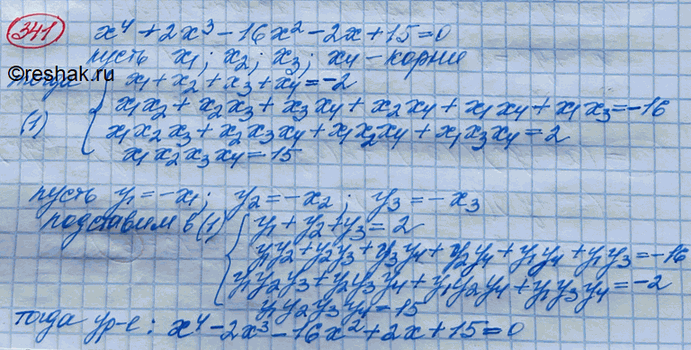 341
x⁴ + 2x³ - 16x² - 2x + 15 = 0
пусть x₁; x₂; x₃; x₄ - корни
©reshak.ru
тогда x₁ + x₂ + x₃ + x₄ = -2
x₁x₂ + x₂x₃ + x₃x₄ + x₂x₄ + x₁x₄ + x₁x₃ = -16
(1) x₁x₂x₃ + x₂x₃x₄ + x₁x₂x₄ + x₁x₃x₄ = 2
x₁x₂x₃x₄ = 15
пусть y₁ = -x₁; y₂ = -x₂; y₃ = -x₃
подставим в (1) y₁ + y₂ + y₃ = 2
y₁y₂ + y₂y₃ + y₃y₄ + y₂y₄ + y₁y₄ + y₁y₃ = -16
y₁y₂y₃ + y₂y₃y₄ + y₁y₂y₄ + y₁y₃y₄ = -2
y₁y₂y₃y₄ = 15
тогда ур-е: x⁴ - 2x³ - 16x² + 2x + 15 = 0